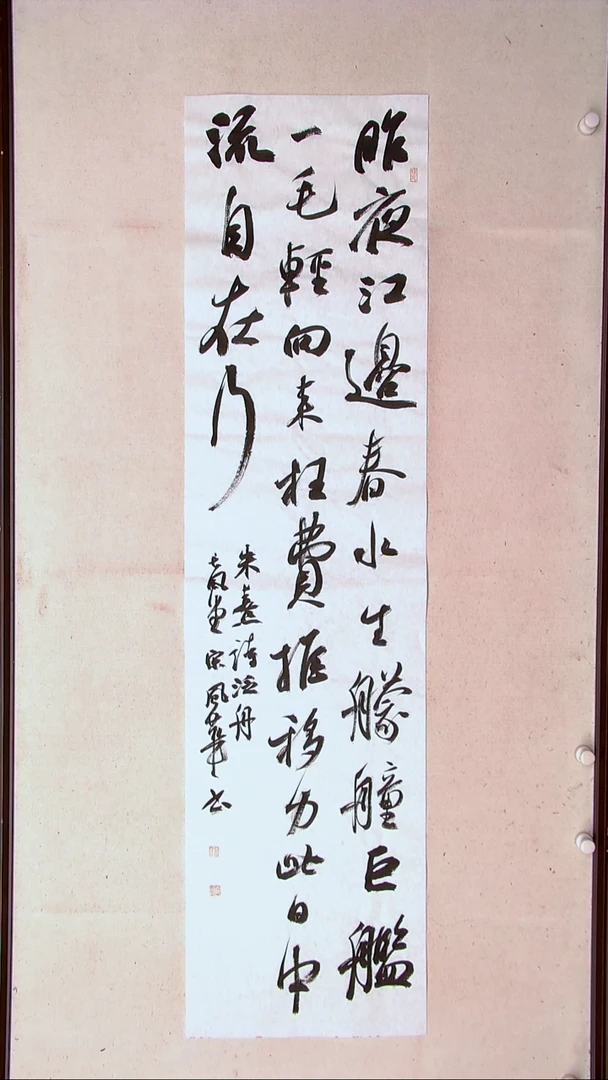 昨夜江邊春水生艨艟巨艦
一毛輕向来枉費推移力此日中
流自在行
朱熹詩泛舟
堂宋風華书